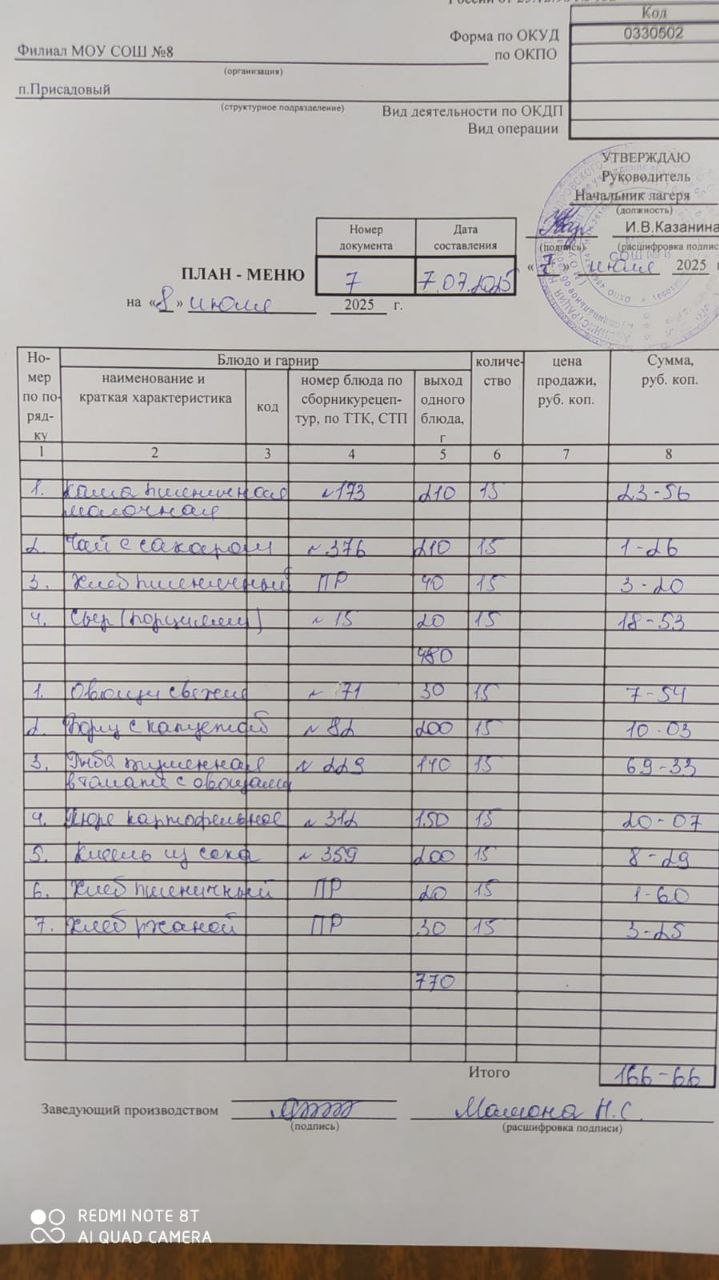 Код
Форма по ОКУД 0330502
Филиал МОУ СОШ №8 по ОКПО
(организация)
п.Присадовый
(структурное подразделение) Вид деятельности по ОКДП
Вид операции
УТВЕРЖДАЮ
Руководитель
Начальник лагеря
(должность)
И.В.Казанина
(подпись) (расшифровка подписи
«7» июля 2025 г
Номер документа Дата составления
ПЛАН - МЕНЮ 7 7.07.2025
на «8» июля 2025 г.
Но-мер по по-ряд-ку Блюдо и гарнир количе-ство цена продажи, руб. коп. Сумма, руб. коп.
наименование и краткая характеристика код номер блюда по сборникурецеп-тур, по ТТК, СТП выход одного блюда, г
1 2 3 4 5 6 7 8
1. Каша пшеничная №173 210 15 23-56
молочная
2. Чай с сахаром №376 210 15 1-26
3. Хлеб пшеничный ПР 40 15 3-20
4. Сыр (порциями) №15 20 15 18-53
480
1. Овощи свежие №71 30 15 7-54
2. Борщ с капустой №82 200 15 10-03
3. Рыба тушенная №229 140 15 69-33
в томате с овощами
4. Пюре картофельное №312 150 15 20-07
5. Кисель из сока №359 200 15 8-29
6. Хлеб пшеничный ПР 20 15 1-60
7. Хлеб ржаной ПР 30 15 3-25
770
Итого 166-66
Заведующий производством
(подпись) (расшифровка подписи)
REDMI NOTE 8T
AI QUAD CAMERA